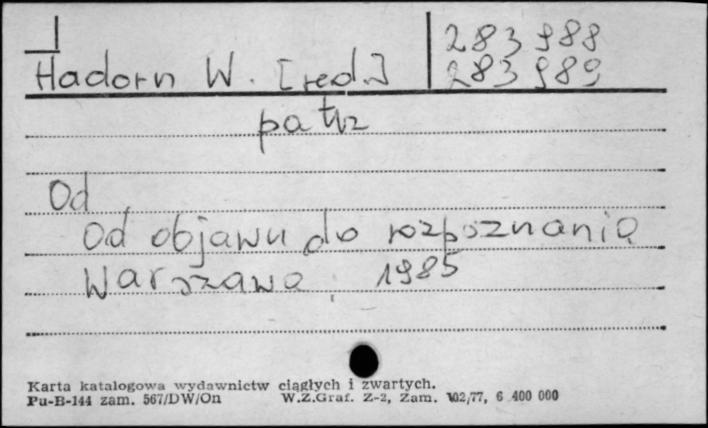 283 988
Hadorn W. [red.] 283 989
patrz
Od
Od objawu do rozpoznania
Warszawa, 1985
Karta katalogowa wydawnictw ciągłych i zwartych.
Pu-B-144 zam. 567/DW/On W.Z.Graf. Z-2, Zam. 102/77, 6 400 000